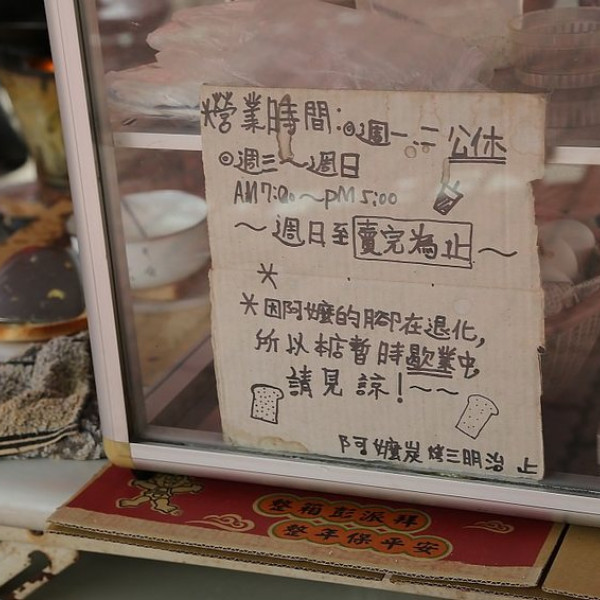 *營業時間:◎週一.二公休
◎週三～週日
AM7:00～PM5:00
～週日至賣完為止～
*
*因阿嬤的腳在退化,
所以本店暫時歇業中,
請見諒!～～
阿嬤炭烤三明治 上
整箱彭派拜
整年保平安